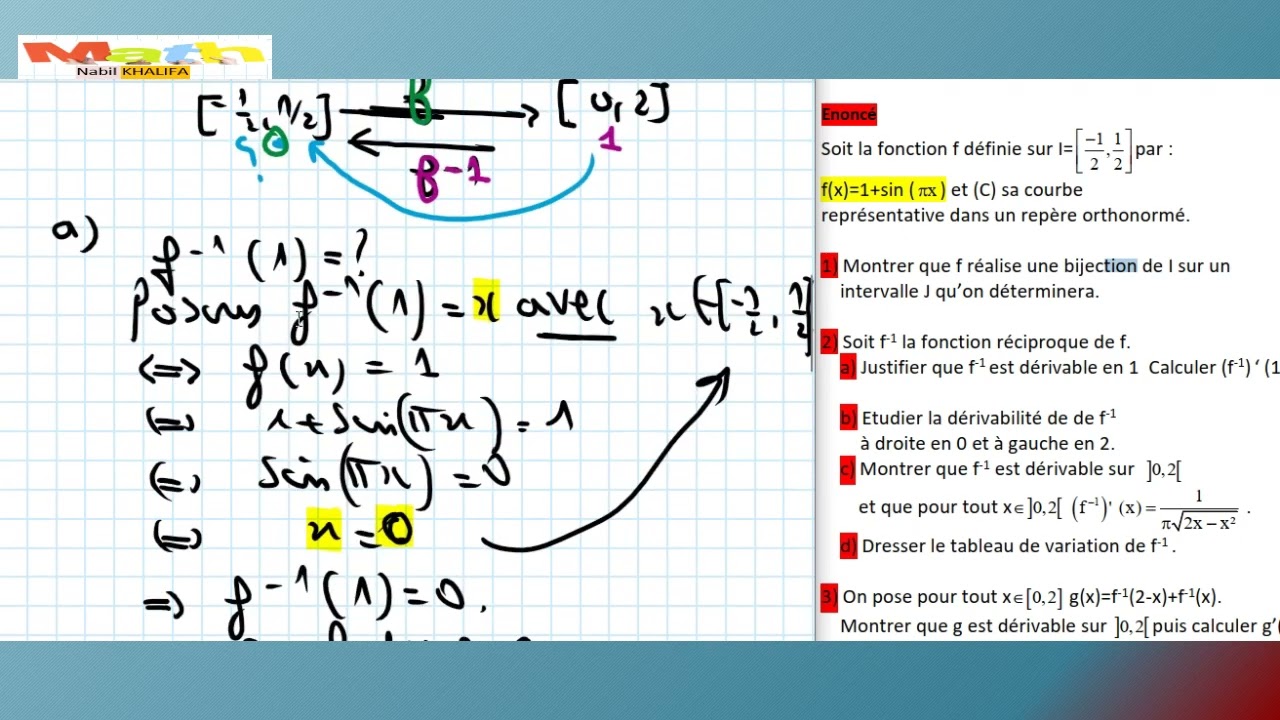 Math
Nabil KHALIFA
[-1/2, 1/2] f [0, 2]
? 0 f-1 1
a)
f-1 (1) = ?
Posons f-1 (1) = x avec x ∈ [-1/2, 1/2]
<=> f(x) = 1
<=> 1 + sin(πx) = 1
<=> sin(πx) = 0
<=> x = 0
=> f-1 (1) = 0.
Enoncé
Soit la fonction f définie sur I=[-1/2, 1/2] par :
f(x)=1+sin ( πx ) et (C) sa courbe
représentative dans un repère orthonormé.
1) Montrer que f réalise une bijection de I sur un
intervalle J qu'on déterminera.
2) Soit f-1 la fonction réciproque de f.
a) Justifier que f-1 est dérivable en 1 Calculer (f-1) ‘ (1
b) Etudier la dérivabilité de de f-1
à droite en 0 et à gauche en 2.
c) Montrer que f-1 est dérivable sur ]0,2[
et que pour tout x∈]0,2[ (f-1)' (x) = 1/(π√(2x−x²)) .
d) Dresser le tableau de variation de f-1 .
3) On pose pour tout x∈[0,2] g(x)=f-1(2-x)+f-1(x).
Montrer que g est dérivable sur ]0,2[ puis calculer g’(